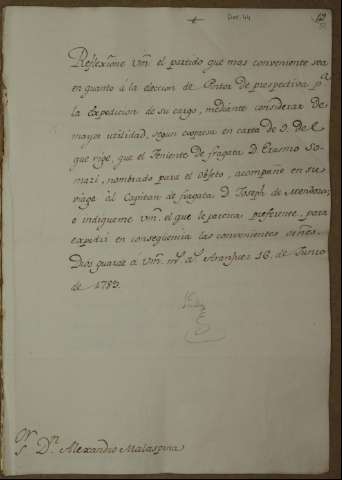 Doc. 44
12
Reflexione Vm. el partido que mas conveniente sea
en quanto á la eleccion de Pintor de prospectiva pª
la Expedicion de su cargo, mediante considerar de
mayor utilidad, segun expresa en carta de 9. del
que rige, que el Teniente de fragata D. Erasmo So-
mazi, nombrado para el objeto, acompañe en su
viage al Capitan de fragata D. Joseph de Mendoza;
e indigueme Vm. el que le parezca preferente, para
expedir en conseqüencia las convenientes órñes.
Dios guarde á Vm. mˢ. aˢ. Aranjuez 16. de Junio
de 1789.
Sʳ. Dⁿ. Alexandro Malaspina